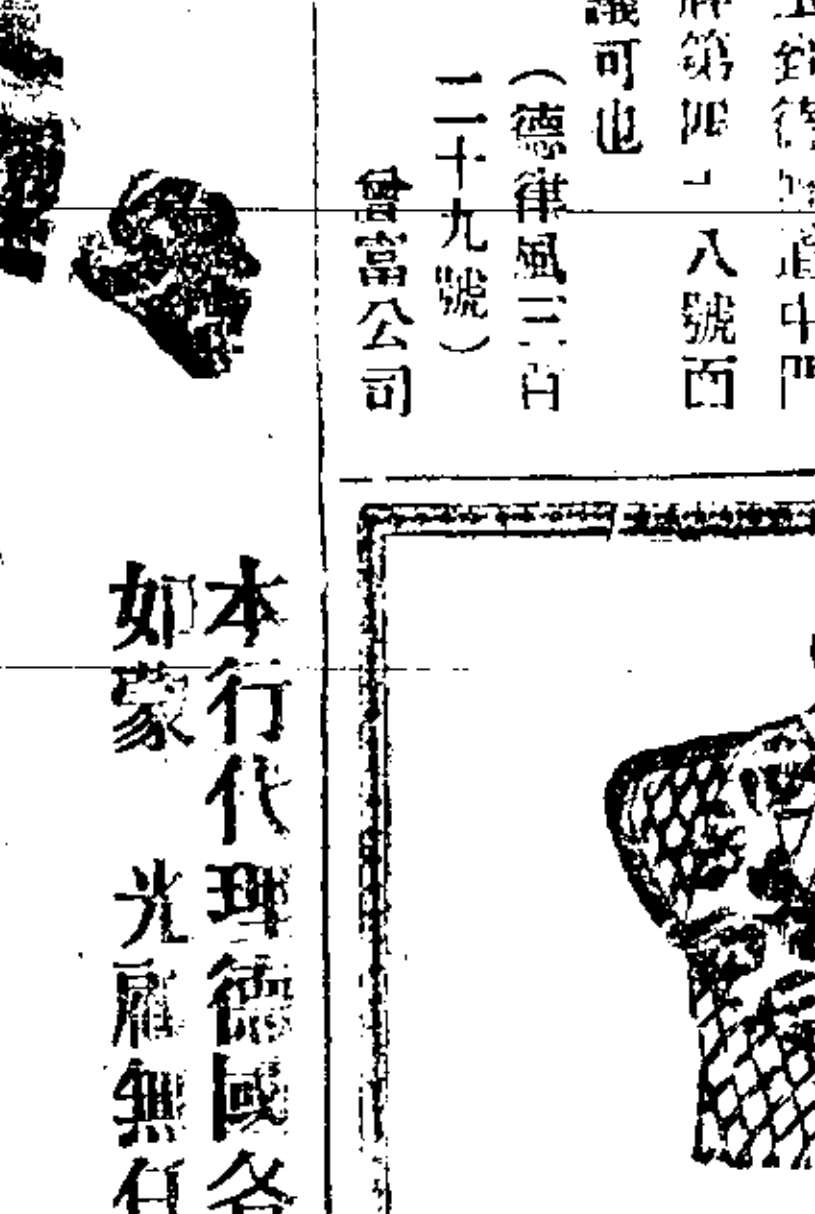 牌第四十八號面
議可也
（德律風三百
二十九號）
曾富公司
本行代理德國各
如蒙　光顧無任